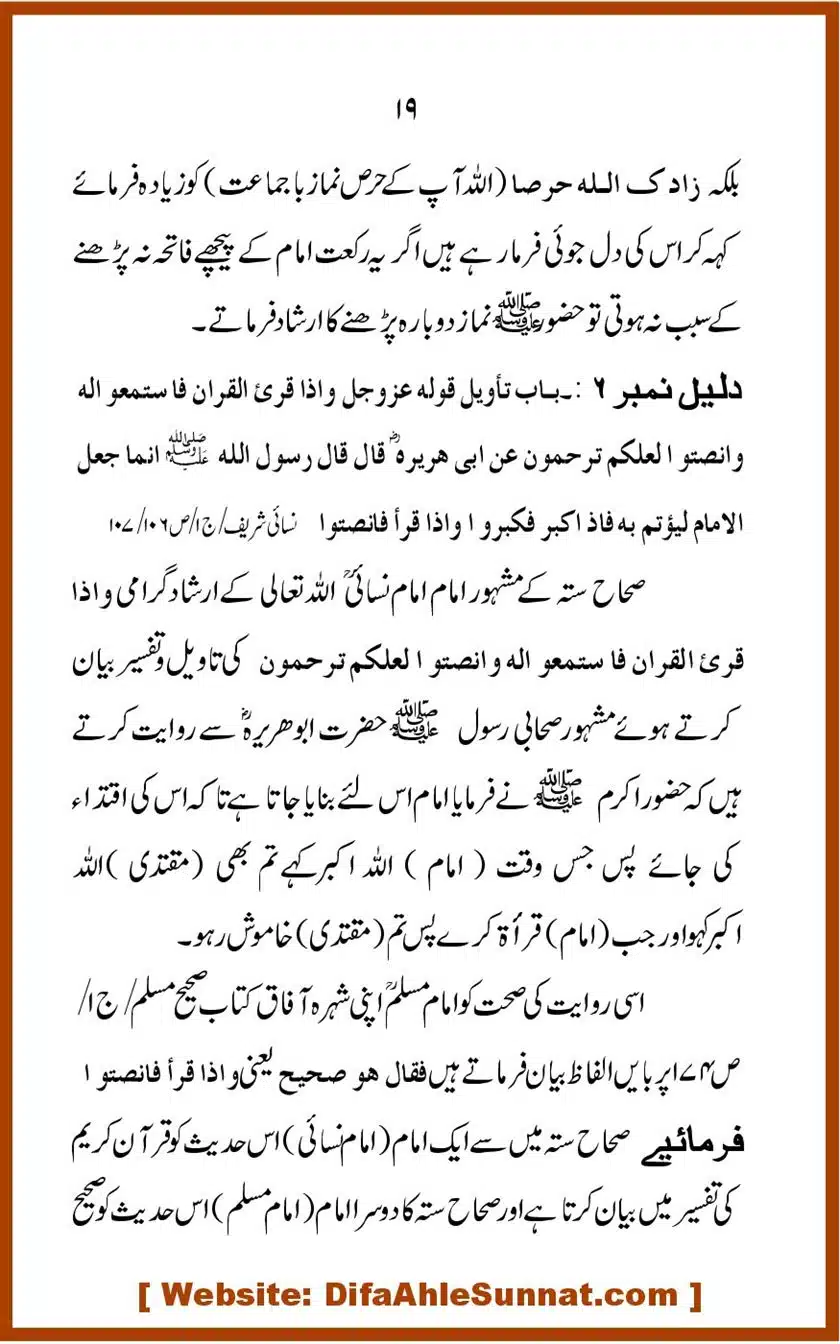 ۱۹
بلکہ زادک اللہ حرصا (اللہ آپ کے حرص نماز باجماعت) کو زیادہ فرمائے
کہہ کر اس کی دل جوئی فرما رہے ہیں اگر یہ رکعت امام کے پیچھے فاتحہ نہ پڑھنے
کے سبب نہ ہوتی تو حضور ﷺ نماز دوبارہ پڑھنے کا ارشاد فرماتے۔
دلیل نمبر ۶ :۔باب تأویل قولہ عزوجل واذا قرئ القران فاستمعو الہ
وانصتو ا لعلکم ترحمون عن ابی ھریرہ ؓ قال قال رسول اللہ ﷺ انما جعل
الامام لیؤتم بہ فاذ اکبر فکبرو ا واذا قرأ فانصتوا نسائی شریف/ج۱/ص۱۰۶/۱۰۷
صحاح ستہ کے مشہور امام امام نسائی ؒ اللہ تعالی کے ارشاد گرامی واذا
قرئ القران فاستمعو الہ وانصتو ا لعلکم ترحمون کی تاویل و تفسیر بیان
کرتے ہوئے مشہور صحابی رسول ﷺ حضرت ابو ھریرہ ؓ سے روایت کرتے
ہیں کہ حضور اکرم ﷺ نے فرمایا امام اس لئے بنایا جاتا ہے تا کہ اس کی اقتداء
کی جائے پس جس وقت ( امام ) اللہ اکبر کہے تم بھی (مقتدی )اللہ
اکبر کہو اور جب (امام) قرأۃ کرے پس تم (مقتدی) خاموش رہو۔
اسی روایت کی صحت کو امام مسلم ؒ اپنی شہرہ آفاق کتاب صحیح مسلم/ ج۱/
ص۱۷۴ پر بایں الفاظ بیان فرماتے ہیں فقال ھو صحیح یعنی واذا قرأ فانصتو ا
فرمائیے صحاح ستہ میں سے ایک امام (امام نسائی) اس حدیث کو قرآن کریم
کی تفسیر میں بیان کرتا ہے اور صحاح ستہ کا دوسرا امام (امام مسلم) اس حدیث کو صحیح
[ Website: DifaAhleSunnat.com ]